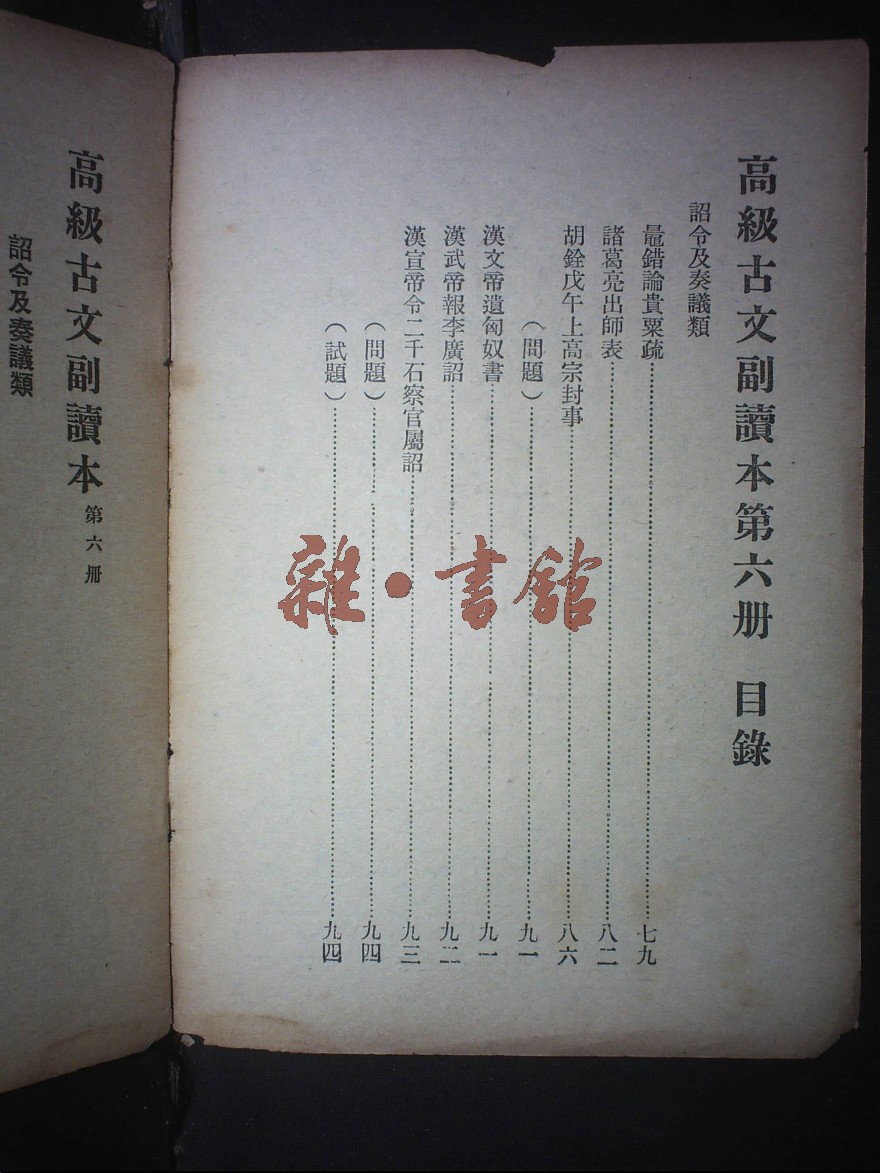 高級古文副讀本第六册 目錄
詔令及奏議類
鼂錯論貴粟疏……七九
諸葛亮出師表……八二
胡銓戊午上高宗封事……八六
（問題）……九一
漢文帝遺匈奴書……九一
漢武帝報李廣詔……九二
漢宣帝令二千石察官屬詔……九三
（問題）……九四
（試題）……九四
雜·書館
高級古文副讀本 第六册
詔令及奏議類